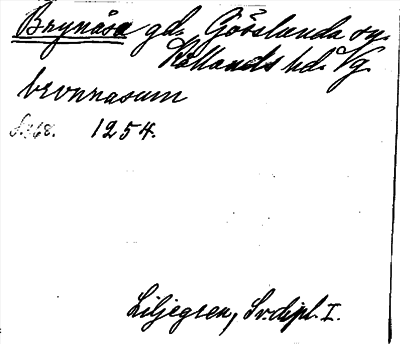 Brynåsa gd. Gösslunda sn.
Kållands hd. Vg.
brvnnasum
S. 368. 1254.
Liljegren, Sv. dipl. I.